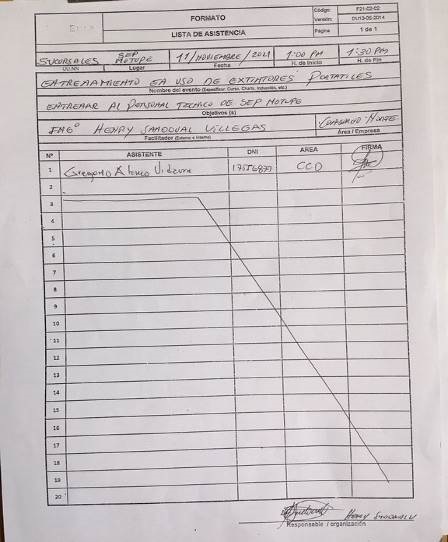 FORMATO
Código: F21-02-02
Versión: 01/13-05-2014
LISTA DE ASISTENCIA
Página 1 de 1
SUCURSALES SEP MOTUPE 11/NOVIEMBRE/2021 1:00 PM 1:30 PM
UU.NN Lugar Fecha H. de Inicio H. de Fin
ENTRENAMIENTO EN USO DE EXTINTORES PORTATILES
Nombre del evento (Especificar: Curso, Charla, Inducción, etc.)
ENTRENAR AL PERSONAL TECNICO DE SEP MOTUPE
Objetivos (s)
ING° HENRY SANDOVAL VILLEGAS
Facilitador (Externo o Interno) Área / Empresa
N° ASISTENTE DNI AREA FIRMA
1 Gregorio CCD
2
3
4
5
6
7
8
9
10
11
12
13
14
15
16
17
18
19
20
HENRY SANDOVAL V
Responsable / organización